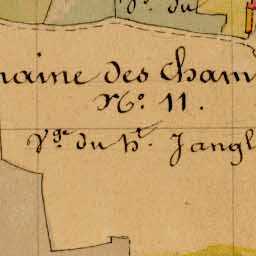 du
maine des Cham
N.° 11.
V.ge du h.t Jangl